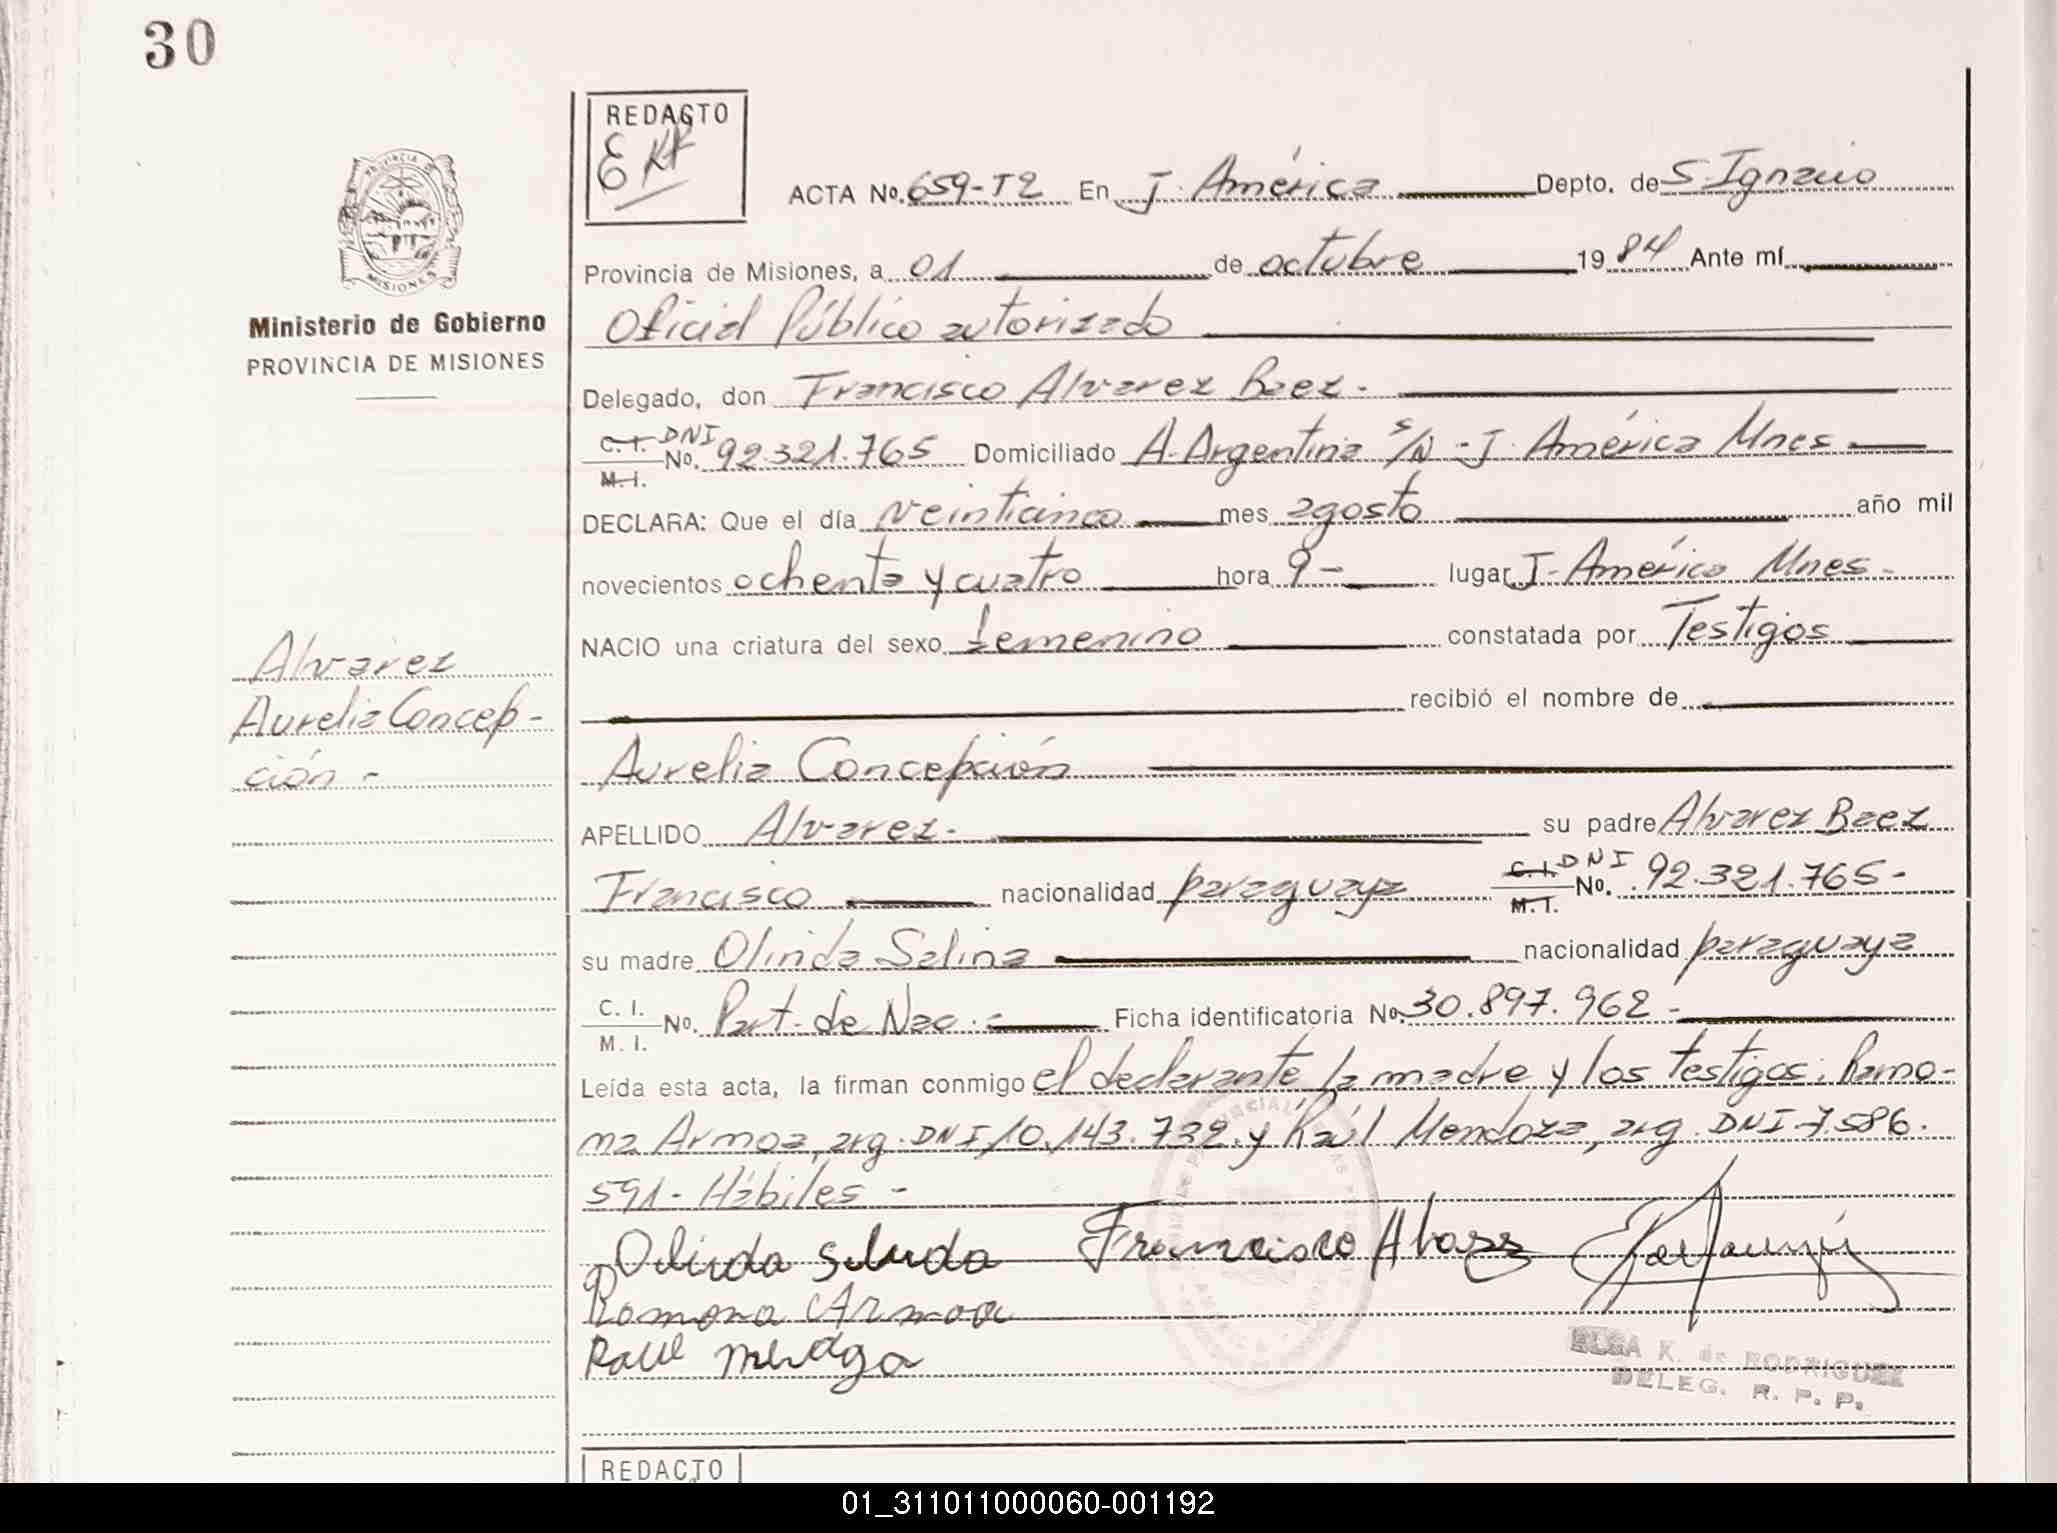 30
REDACTO
ACTA No. 659-T2 En J. América Depto. de S. Ignacio
Provincia de Misiones, a 01 de octubre 19 84 Ante mí
Oficial Público autorizado
Ministerio de Gobierno
PROVINCIA DE MISIONES
Delegado, don Francisco Alvarez Baez.
C. I. DNI
M. I. No. 92.321.765 Domiciliado A. Argentina s/N - J. América Mnes
DECLARA: Que el día veinticinco mes agosto año mil
novecientos ochenta y cuatro hora 9 - lugar J. América Mnes -
NACIO una criatura del sexo femenino constatada por Testigos
recibió el nombre de
Alvarez
Aurelia Concep-
ción -
Aurelia Concepción
APELLIDO Alvarez. su padre Alvarez Baez
Francisco nacionalidad paraguaya C. I. DNI
M. I. No. 92.321.765 -
su madre Olinda Salina nacionalidad paraguaya
C. I.
M. I. No. Part. de Nac. - Ficha identificatoria No. 30.897.962 -
Leída esta acta, la firman conmigo el declarante la madre y los testigos: Ramo-
na Armoa, arg. DNI 10.143.739. y Raúl Mendoza, arg. DNI 7.586.
591 - Hábiles -
Olinda Francisco
Ramona Armoa
Raul
ELBA K. de RODRIGUEZ
DELEG. R. P. P.
REDACTO
01_311011000060-001192